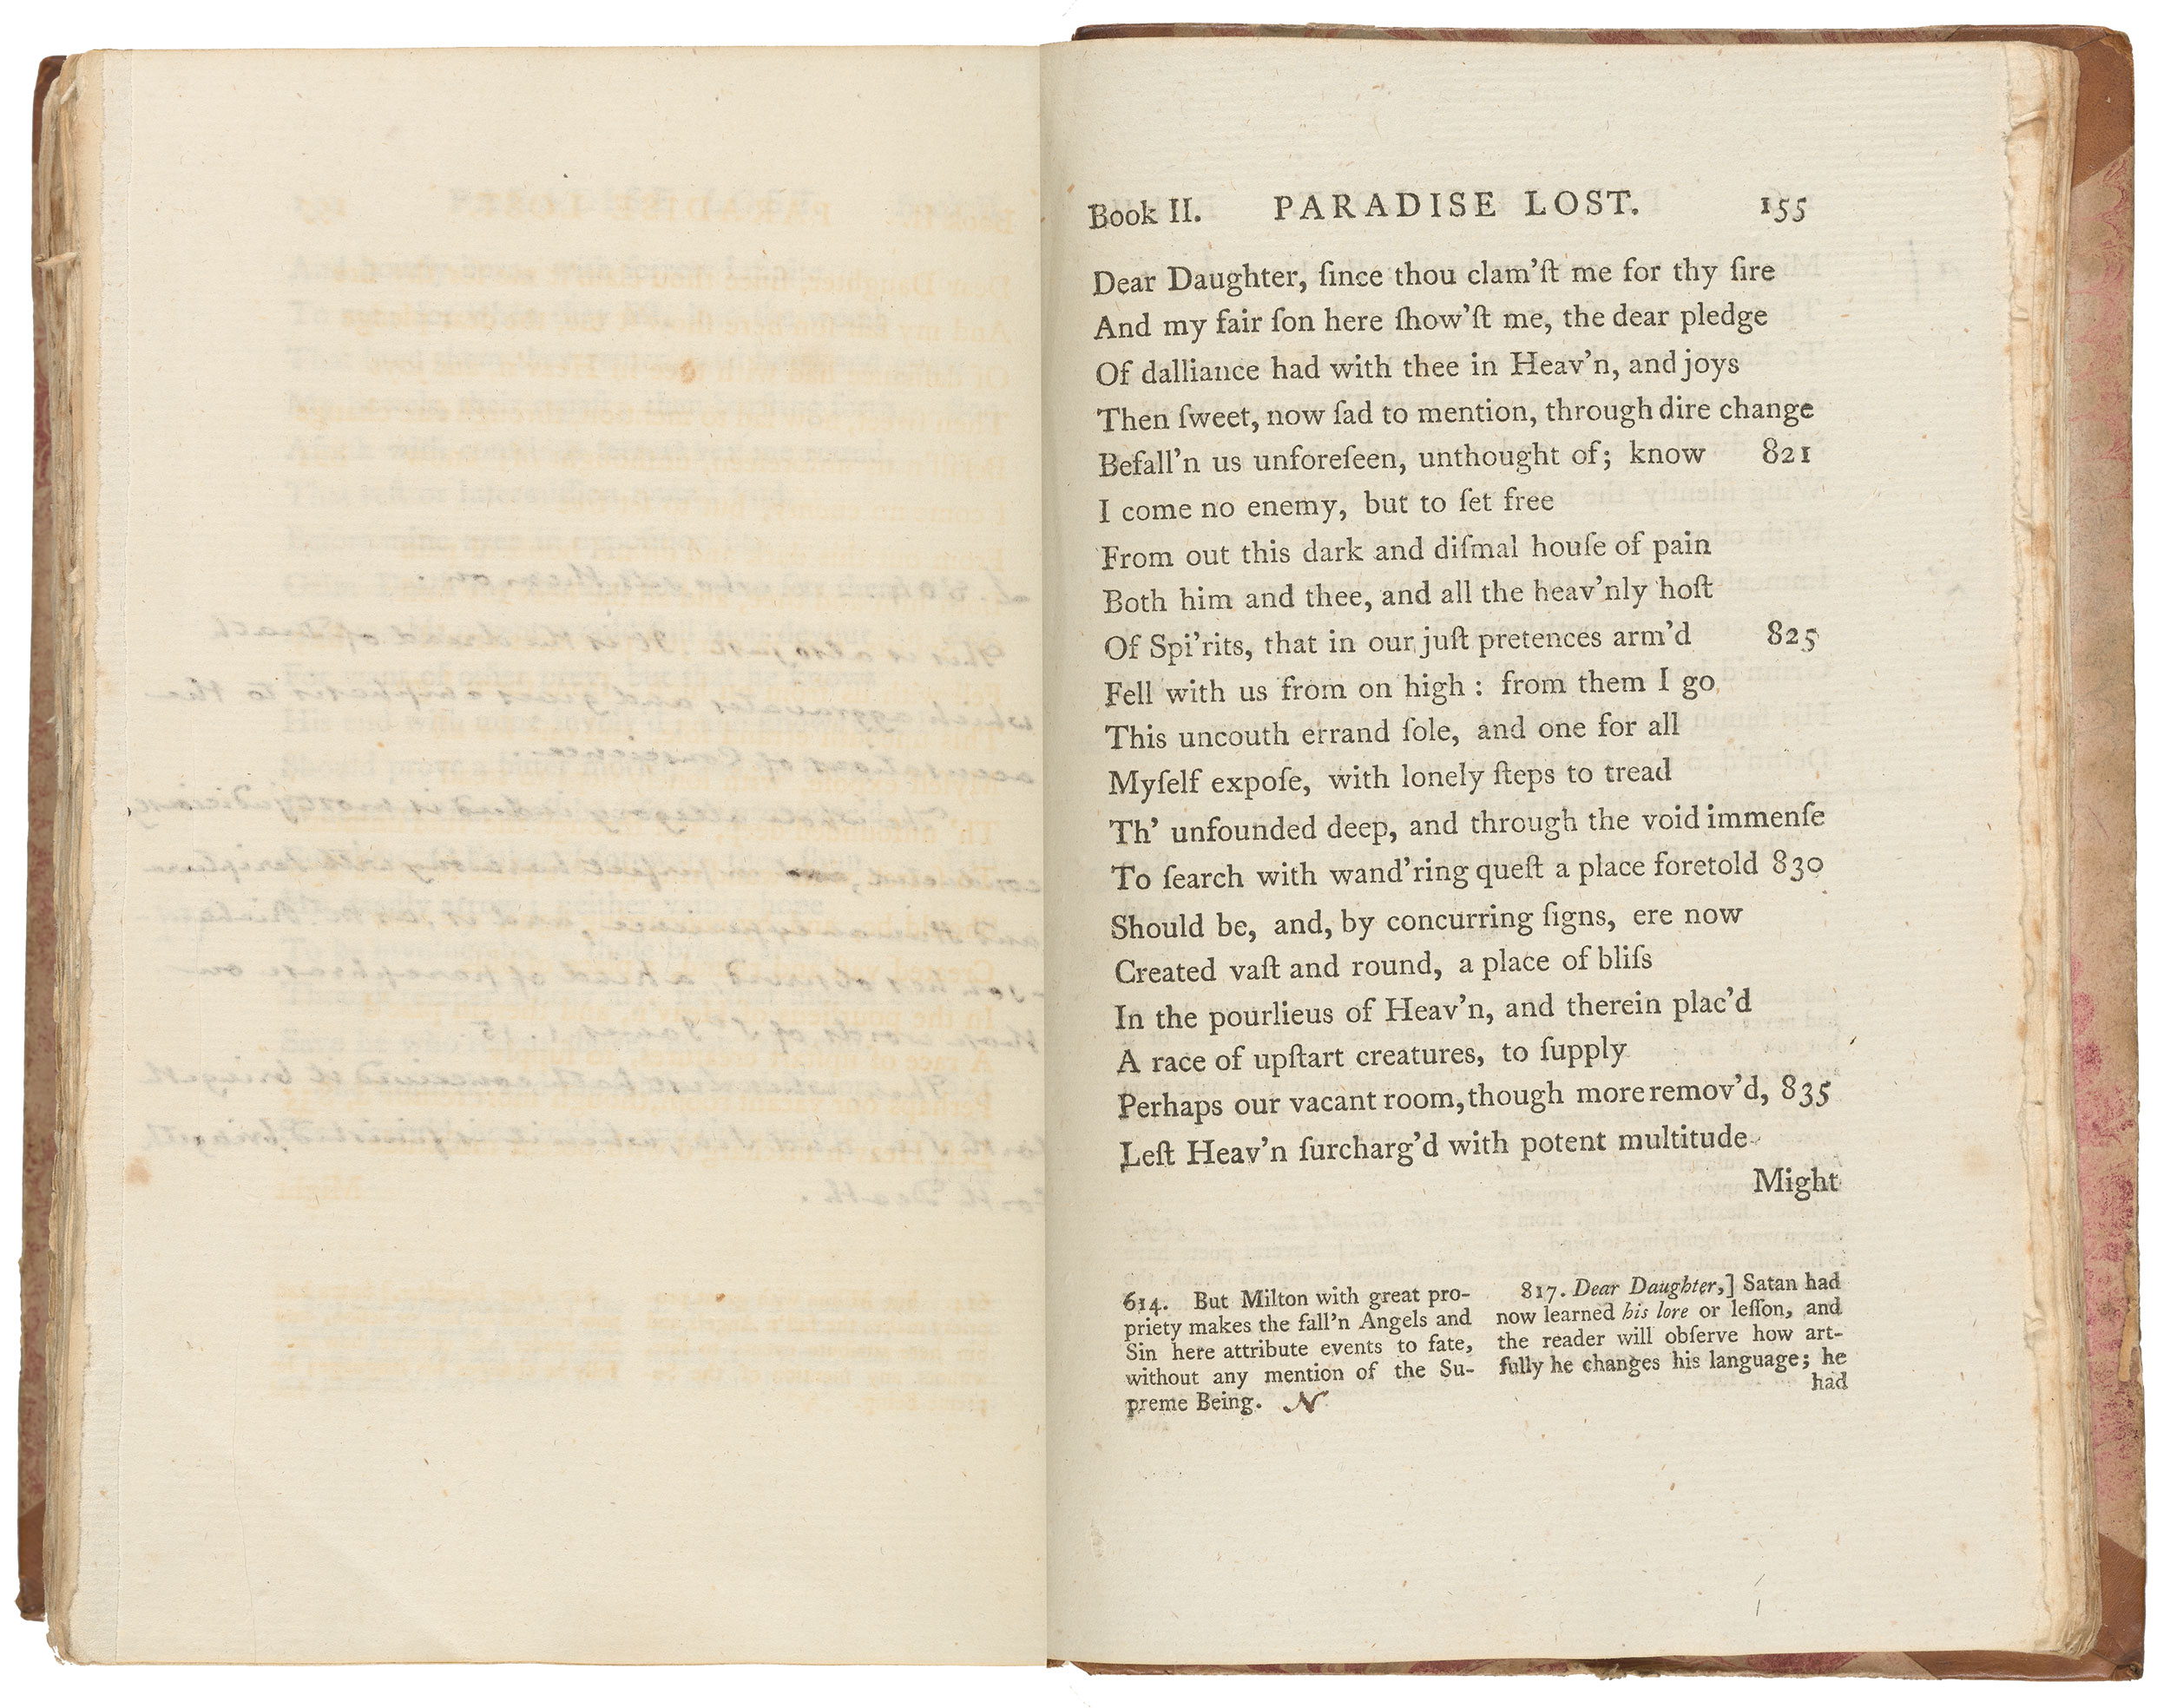 Book II. PARADISE LOST. 155
Dear Daughter, ſince thou clam'ſt me for thy ſire
And my fair ſon here ſhow'ſt me, the dear pledge
Of dalliance had with thee in Heav'n, and joys
Then ſweet, now ſad to mention, through dire change
Befall'n us unforeſeen, unthought of; know 821
I come no enemy, but to ſet free
From out this dark and diſmal houſe of pain
Both him and thee, and all the heav'nly hoſt
Of Spi'rits, that in our juſt pretences arm'd 825
Fell with us from on high : from them I go
This uncouth errand ſole, and one for all
Myſelf expoſe, with lonely ſteps to tread
Th' unfounded deep, and through the void immenſe
To ſearch with wand'ring queſt a place foretold 830
Should be, and, by concurring ſigns, ere now
Created vaſt and round, a place of bliſs
In the pourlieus of Heav'n, and therein plac'd
A race of upſtart creatures, to ſupply
Perhaps our vacant room, though more remov'd, 835
Leſt Heav'n ſurcharg'd with potent multitude
Might
614. But Milton with great pro-
priety makes the fall'n Angels and
Sin here attribute events to fate,
without any mention of the Su-
preme Being. N
817. Dear Daughter,] Satan had
now learned his lore or leſſon, and
the reader will obſerve how art-
fully he changes his language; he
had